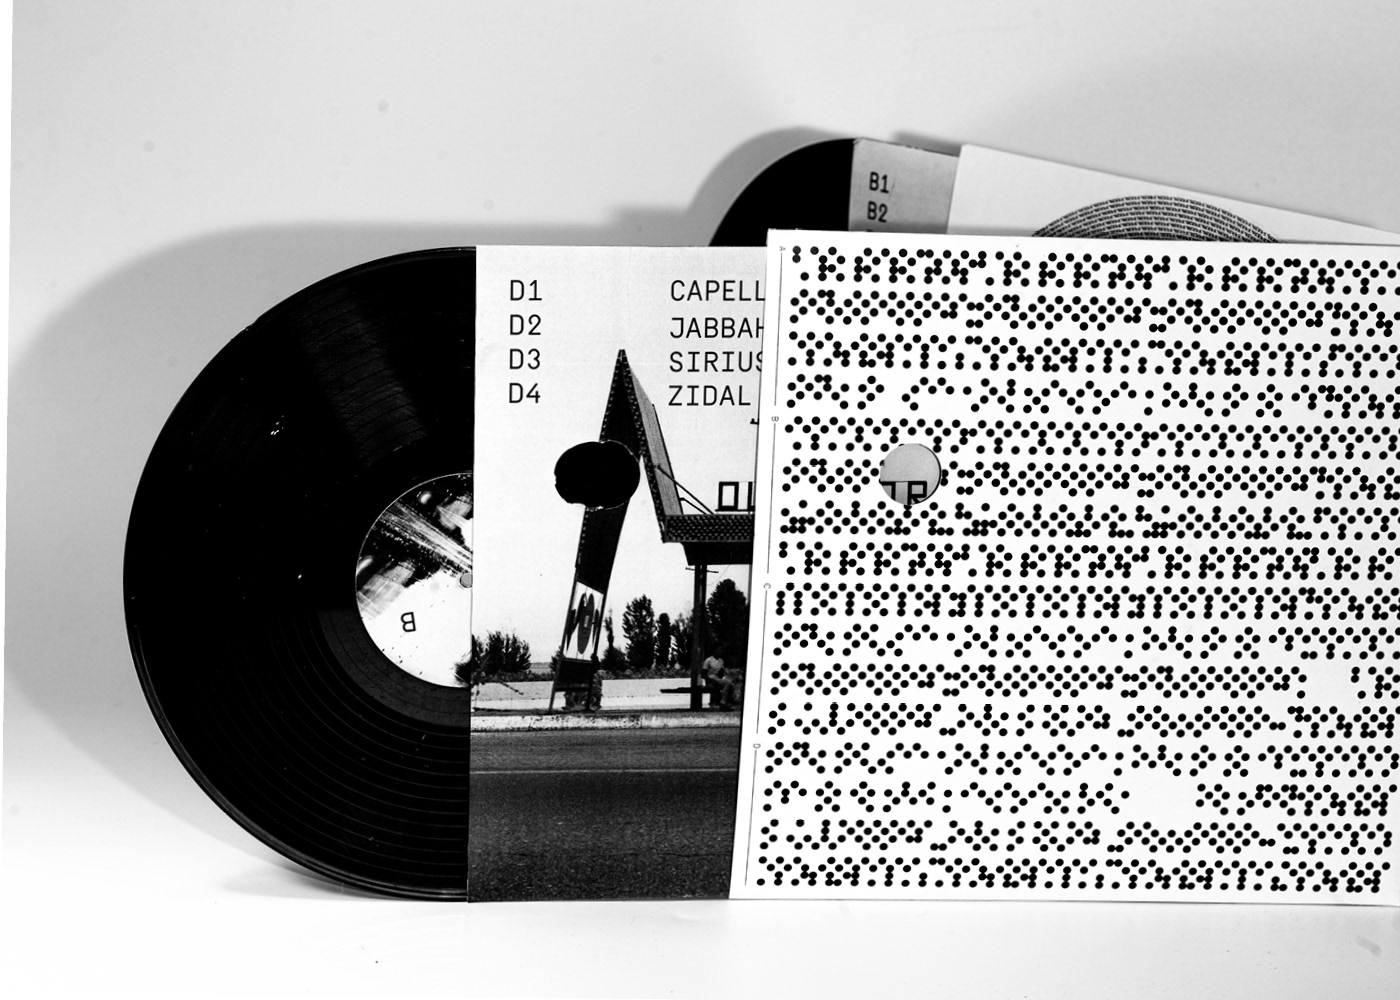 B1
B2
D1 CAPELL
D2 JABBAH
D3 SIRIUS
D4 ZIDAL
B
A
B
C
D